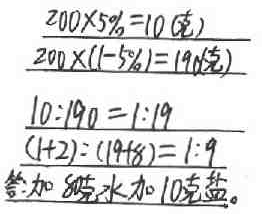 200×5%=10(克)
200×(1-5%)=190(克)
10:190=1:19
(1+2):(19+8)=1:9
答:加80克水加10克盐。